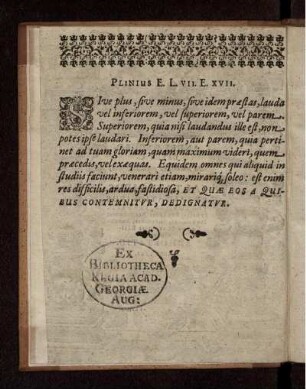 PLINIUS E. L. VII. E. XVII.
SIve plus, sive minus, sive idem præstas, lauda
vel inferiorem, vel superiorem, vel parem.
Superiorem, quia nisi laudandus ille est, non
potes ipse laudari. Inferiorem, aut parem, quia perti-
net ad tuam gloriam, quam maximum videri, quem
præcedis, vel exæquas. Equidem omnes qui aliquid in
studiis faciunt, venerari etiam, mirariq; soleo: est enim
res difficilis, ardua, fastidiosa, ET QUÆ EOS A QUI-
BUS CONTEMNITVR, DEDIGNATVR.
EX
BIBLIOTHECA
REGIA ACAD.
GEORGIÆ
AUG: